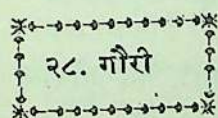 २८. गौरी